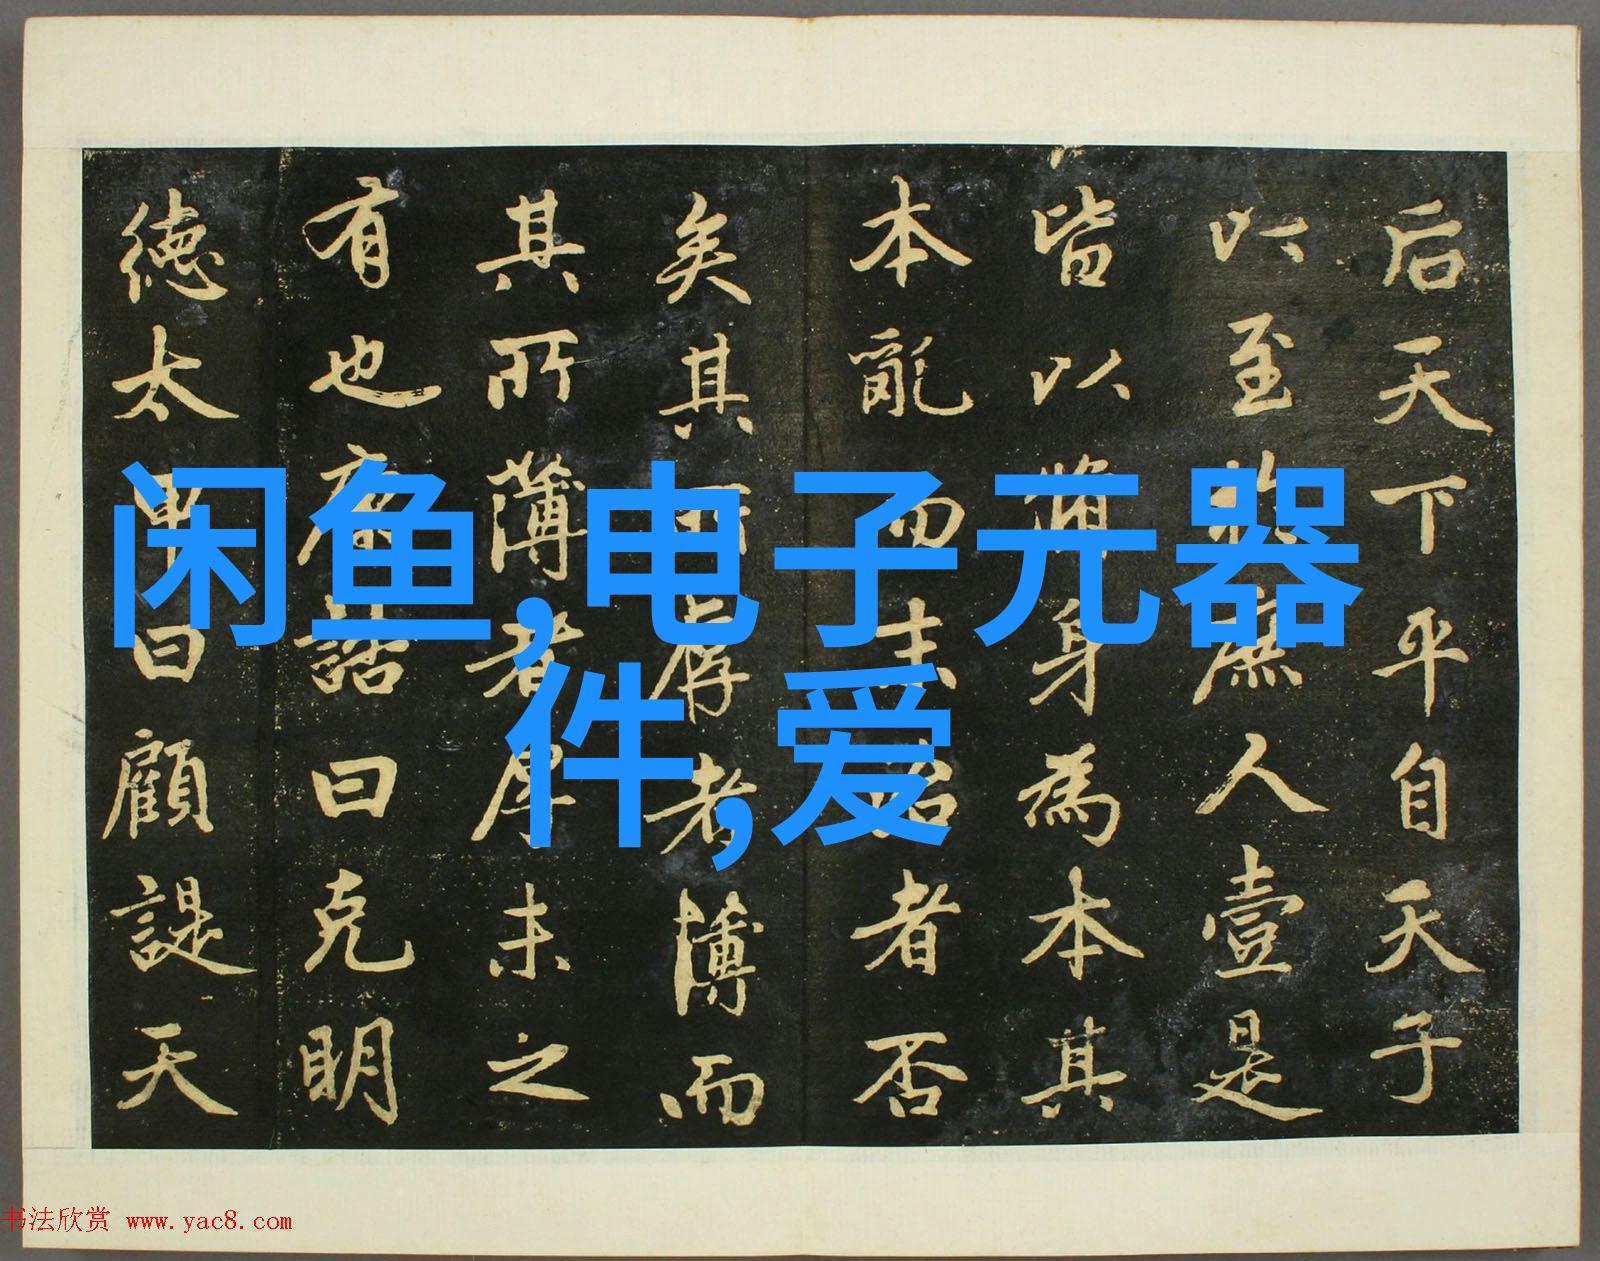 后天下平自天子
以至於庶人壹是
皆以脩身為本其
本亂而末治者否
矣其所厚者薄而
其所薄者厚未之
有也康誥曰克明
德太甲曰顧諟天
闲鱼,电子元器
件,爱
书法欣赏 www.yac8.com